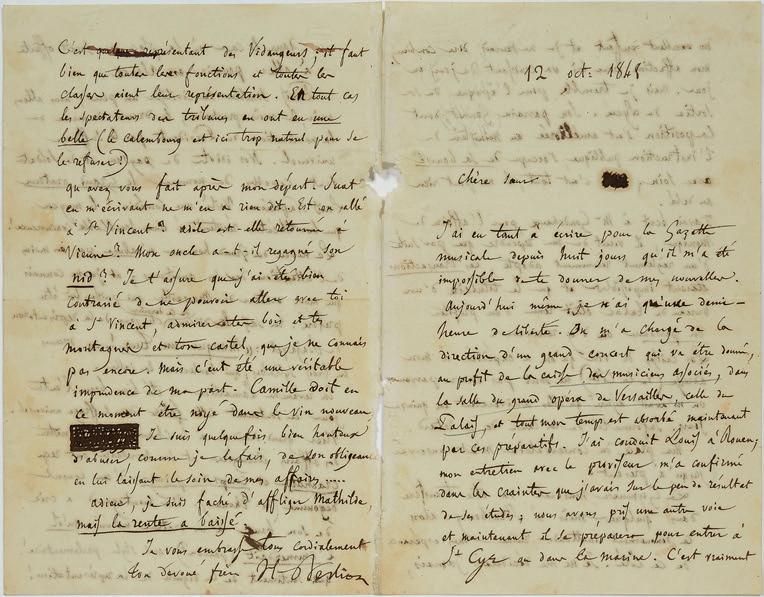 12 oct: 1848
Chère sœur
J'ai eu tant à écrire pour la Gazette
musicale depuis huit jours qu'il m'a été
impossible de te donner de mes nouvelles.
Aujourd'hui même, je n'ai qu'une demie-
heure de liberté. On m'a chargé de la
direction d'un grand concert qui va être donné,
au profit de la caisse des musiciens associés, dans
la salle du grand opera de Versailles, celle du
Palais, et tout mon temps est absorbé maintenant
par ces préparatifs. J'ai conduit Louis à Rouen;
mon entretien avec le proviseur m'a confirmé
dans les craintes que j'avais sur le peu de résultat
de ses études; nous avons pris une autre voie
et maintenant il se préparera pour entrer à
St Cyr ou dans la marine. C'est vraiment
C'est représentant des Vidangeurs; il faut
bien que toutes les fonctions et toutes les
classes aient leur représentation. En tout cas
les spectateurs des tribunes en ont eu une
belle (le calembourg est ici trop naturel pour se
le refuser!)
qu'avez vous fait après mon départ. Suat
en m'écrivant ne m'en a rien dit. Est on allé
à St Vincent? adèle est-elle retournée à
Vienne? Mon oncle a-t-il regagné son
nid? Je t'assure que j'ai été bien
contrarié de ne pouvoir aller avec toi
à St Vincent, admirer tes bois et tes
montagnes et ton castel, que je ne connais
pas encore. Mais c'eut été une véritable
imprudence de ma part. Camille doit en
ce moment être noyé dans le vin nouveau
Je suis quelquefois bien honteux
d'abuser comme je le fais, de son obligeance
en lui laissant le soin de mes affaires.....
adieu, je suis faché d'affliger Mathilde,
mais la rente a baissé
Je vous embrasse tous cordialement
ton devoué frère H Berlioz